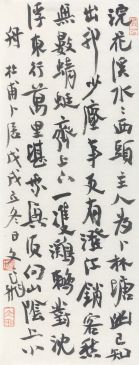 浣花溪水々西頭主人為卜林塘幽已知
出郭少塵事更有澄江銷客愁
無數蜻蜓齊上下一雙鸂鶒對沈
浮東行萬里堪乘興須向山陰上小
舟 杜甫卜居戊戌立冬日